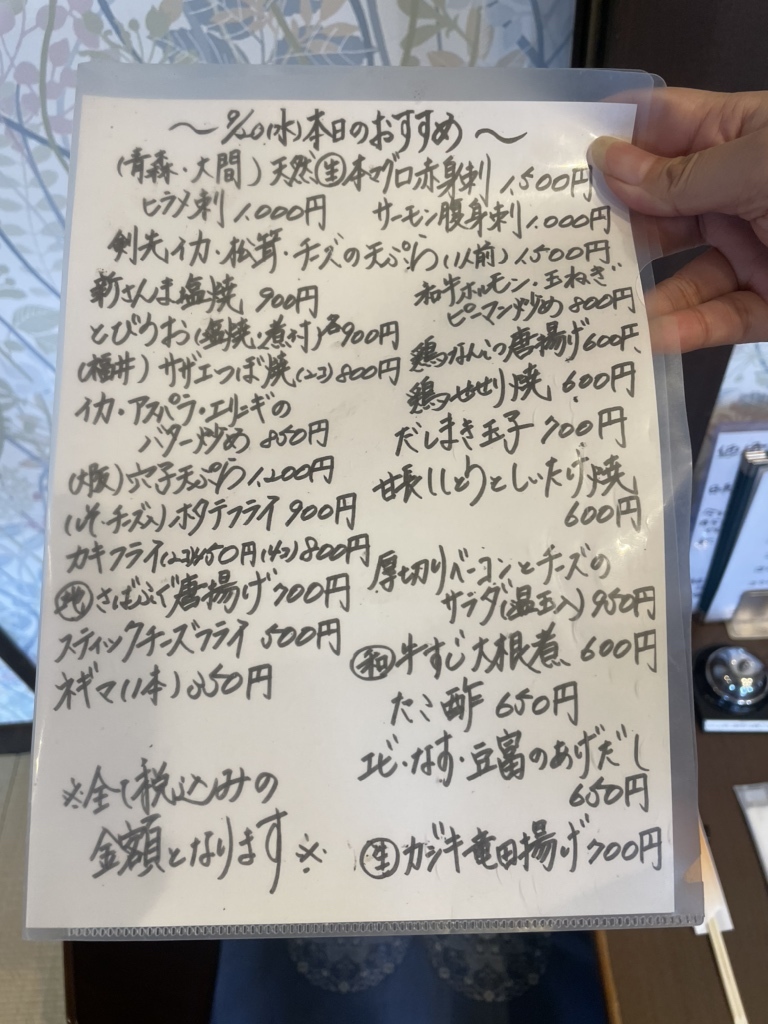 ～9/20(水)本日のおすすめ～
(青森・大間)天然㊤本マグロ赤身刺 1,500円
ヒラメ刺 1,000円
サーモン腹身刺 1,000円
剣先イカ・松茸・チーズの天ぷら(1人前) 1,500円
新さんま塩焼 900円
とびうお(塩焼・煮付)各900円
(福井)サザエつぼ焼(2コ)800円
イカ・アスパラ・エリンギの
バター炒め 850円
(大阪)穴子天ぷら 1,200円
(しそ・チーズ入)ホタテフライ 900円
カキフライ(2コ)450円(4コ)800円
㊞さばふぐ唐揚げ 700円
スティックチーズフライ 500円
ネギマ(1本)350円
※全て税込みの
金額となります※
和牛ホルモン・玉ねぎ
ピーマン炒め 800円
鶏なんこつ唐揚げ 600円
鶏せせり焼 600円
だしまき玉子 700円
甘長ししとうとしいたけ焼
600円
厚切りベーコンとチーズの
サラダ(温玉入)950円
和牛すじ大根煮 600円
たこ酢 650円
エビ・なす・豆富のあげだし
650円
生カジキ竜田揚げ 700円